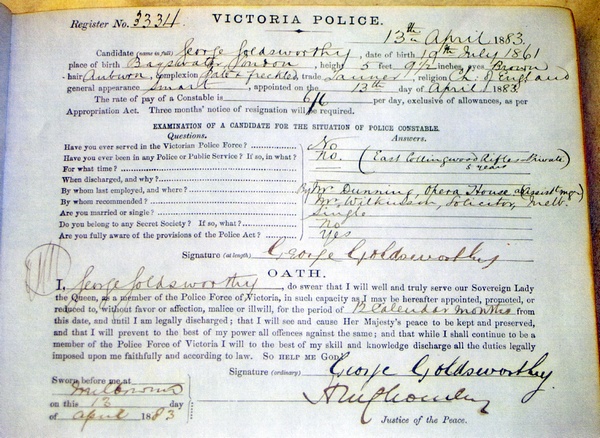 Register No. 3334. VICTORIA POLICE.
13th April 1883.
Candidate (name in full) George Goldsworthy, date of birth 19th July 1861
place of birth Bayswater London, height 5 feet 9½ inches, eyes Brown
hair Auburn, complexion Pale & freckled, trade, religion Ch: of England
general appearance Smart, appointed on the 13th day of April 1883.
The rate of pay of a Constable is 6/6 per day, exclusive of allowances, as per
Appropriation Act. Three months' notice of resignation will be required.
EXAMINATION OF A CANDIDATE FOR THE SITUATION OF POLICE CONSTABLE.
Questions. Answers.
Have you ever served in the Victorian Police Force? No
Have you ever been in any Police or Public Service? If so, in what? No. (East Collingwood Rifles Private)
For what time? 5 years
When discharged, and why?
By whom last employed, and where? By Mr Dunning, Opera House
By whom recommended? Mr. Wilkinson, Solicitor, Melb.
Are you married or single? Single
Do you belong to any Secret Society? If so, what? No
Are you fully aware of the provisions of the Police Act? Yes
Signature (at length) George Goldsworthy
OATH.
I, George Goldsworthy, do swear that I will well and truly serve our Sovereign Lady
the Queen, as a member of the Police Force of Victoria, in such capacity as I may be hereafter appointed, promoted, or
reduced to, without favor or affection, malice or illwill, for the period of 12 Calendar months from
this date, and until I am legally discharged; that I will see and cause Her Majesty's peace to be kept and preserved,
and that I will prevent to the best of my power all offences against the same; and that while I shall continue to be a
member of the Police Force of Victoria I will to the best of my skill and knowledge discharge all the duties legally
imposed upon me faithfully and according to law. SO HELP ME GOD.
Signature (ordinary) George Goldsworthy.
Sworn before me at
Melbourne
on this 13 day
of April 1883
Justice of the Peace.